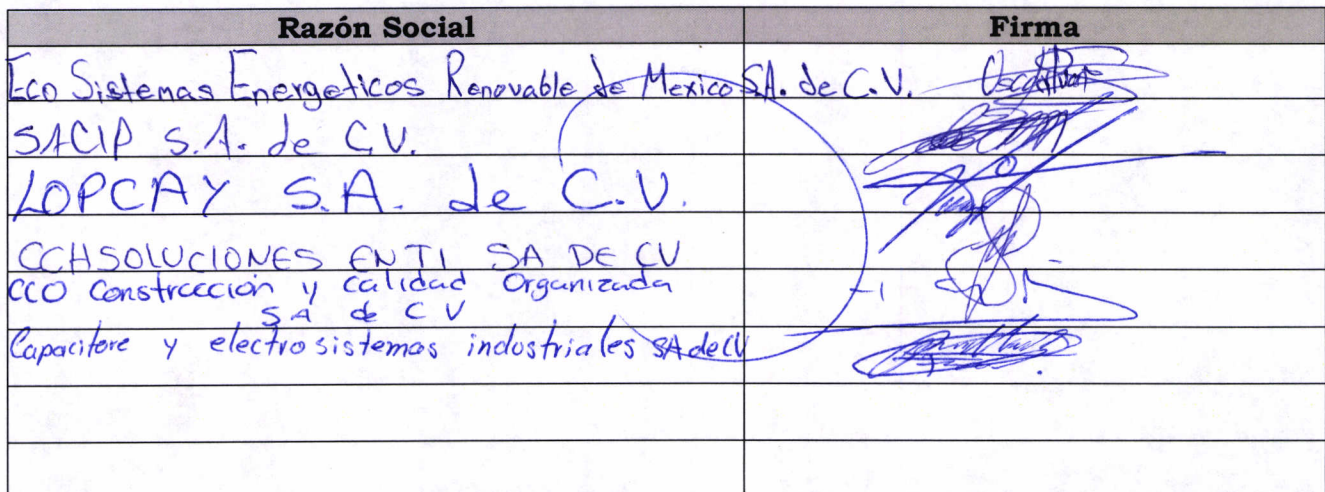 Razón Social Firma
Eco Sistemas Energeticos Renovable de Mexico SA. de C.V.
SACIP S.A. de C.V.
LOPCAY S.A. de C.V.
CCHSOLUCIONES EN TI SA DE CV
CCO Construcción y calidad Organizada
SA de C V
Capacitore y electrosistemas industriales SA de CV